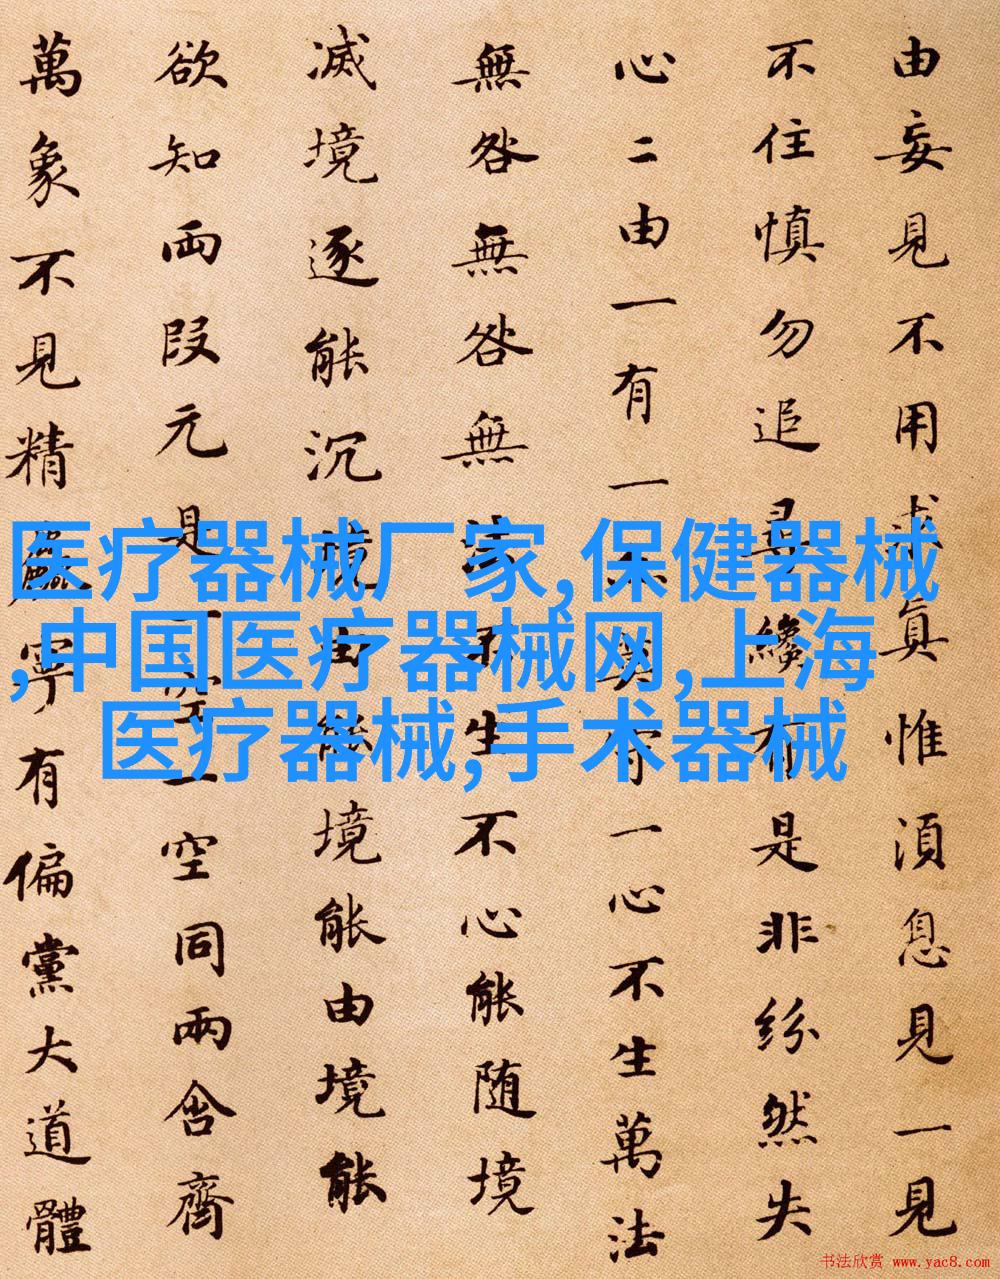 由妄見不用求真惟湏息見一見
不住慎勿追尋纔有是非紛然失
心二由一有一亦莫守一心不生萬法
無咎無咎無法不生不心能随境
滅境逐能沉境由能境能由境能
欲知両段元是一空一空同兩含齊
萬象不見精麁寧有偏黨大道體
医疗器械厂家,保健器械
,中国医疗器械网,上海
医疗器械,手术器械
书法欣赏 www.yac8.com